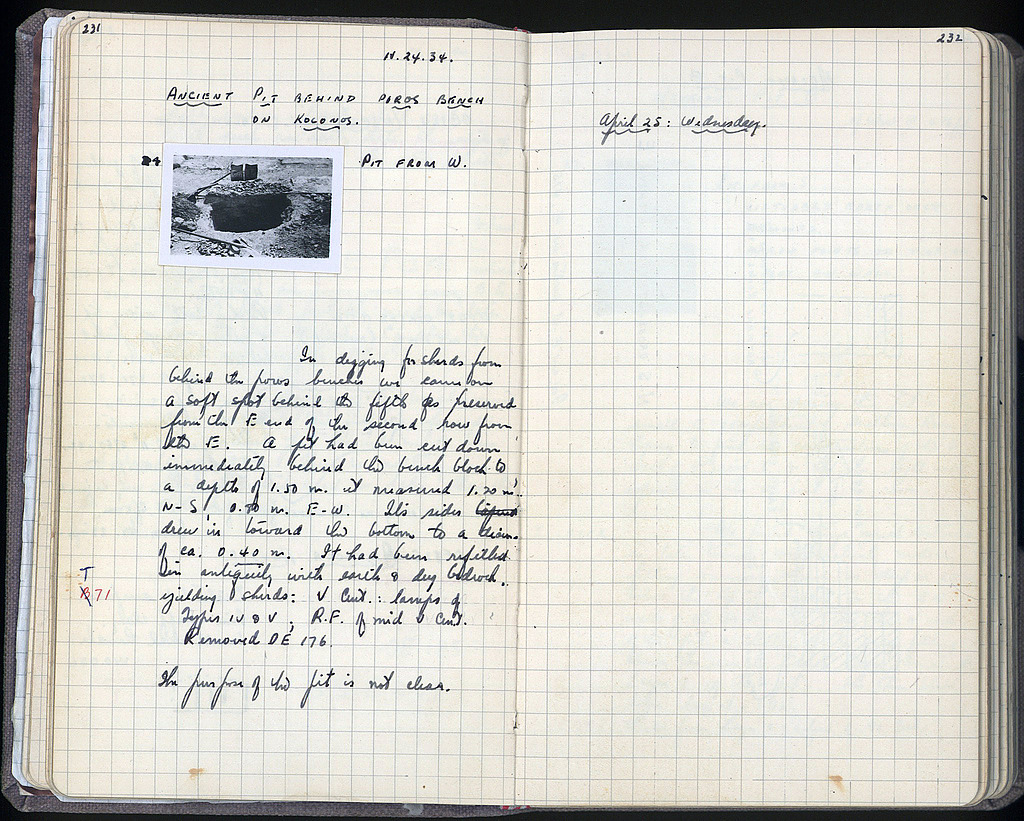 231
IV.24.34.
ANCIENT PIT BEHIND POROS BENCH
ON KOLONOS.
PIT FROM W.
In digging for sherds from
behind the poros benches we came on
a soft spot behind the fifth preserved
from the E end of the second row from
the E. A pit had been cut down
immediately behind the bench block to
a depth of 1.50 m. it measured 1.20 m.
N-S, 0.80 m. E-W. Its sides
drew in toward the bottom to a diam.
of ca. 0.40 m. It had been refilled
in antiquity with earth & dug bedrock,
T
B71
yielding sherds: V Cent.: lamps of
Types IV & V; R.F. of mid V Cent.
Removed DE 176.
The purpose of the pit is not clear.
232
April 25: Wednesday.